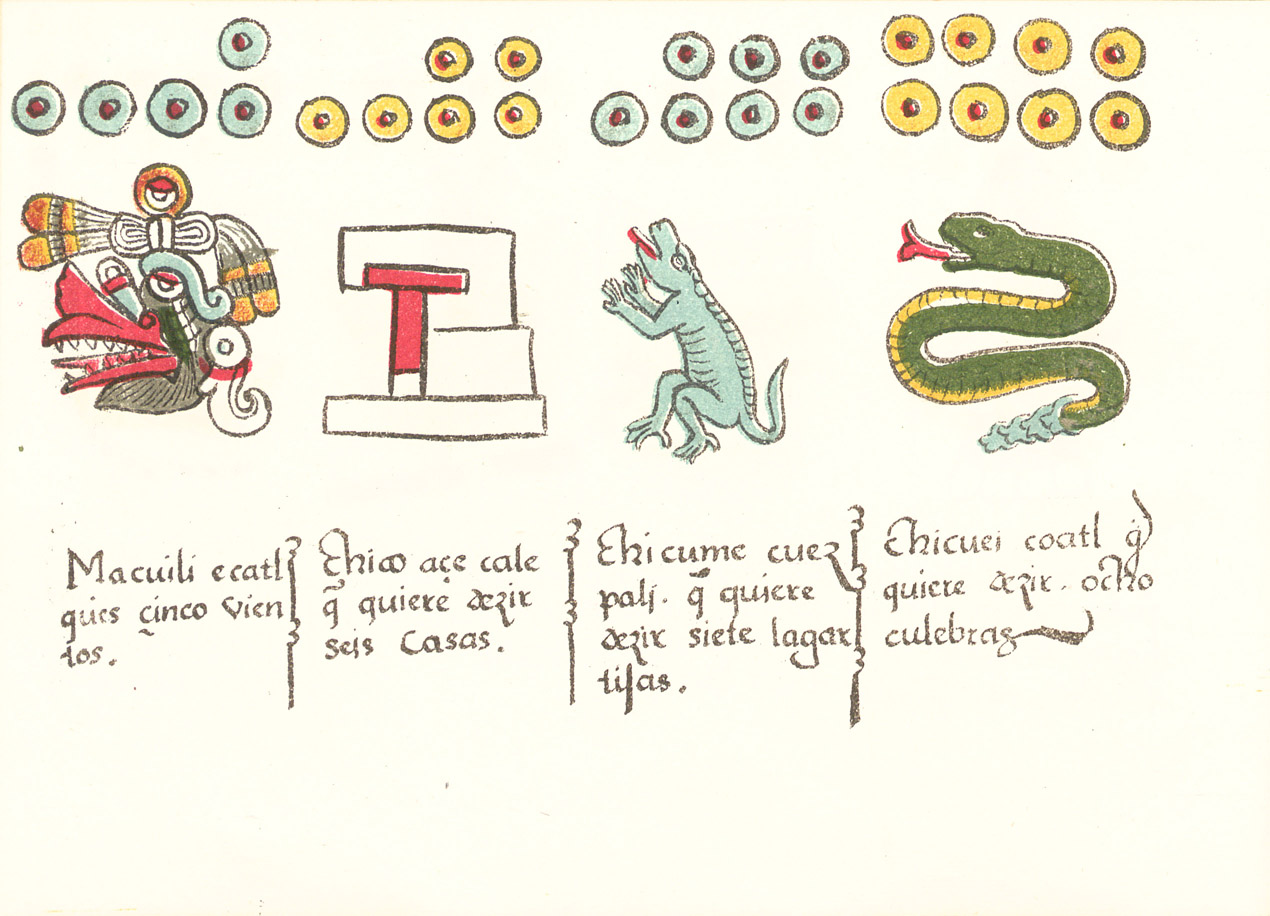 Macuili ecatl
ques çinco vien
tos.
Chico açe cale
q̃ quiere dezir
seis Casas.
Chicume cuez
palj. q̃ quiere
dezir siete lagar
tijas.
Chicuei coatl q̃
quiere dezir. ocho
culebras